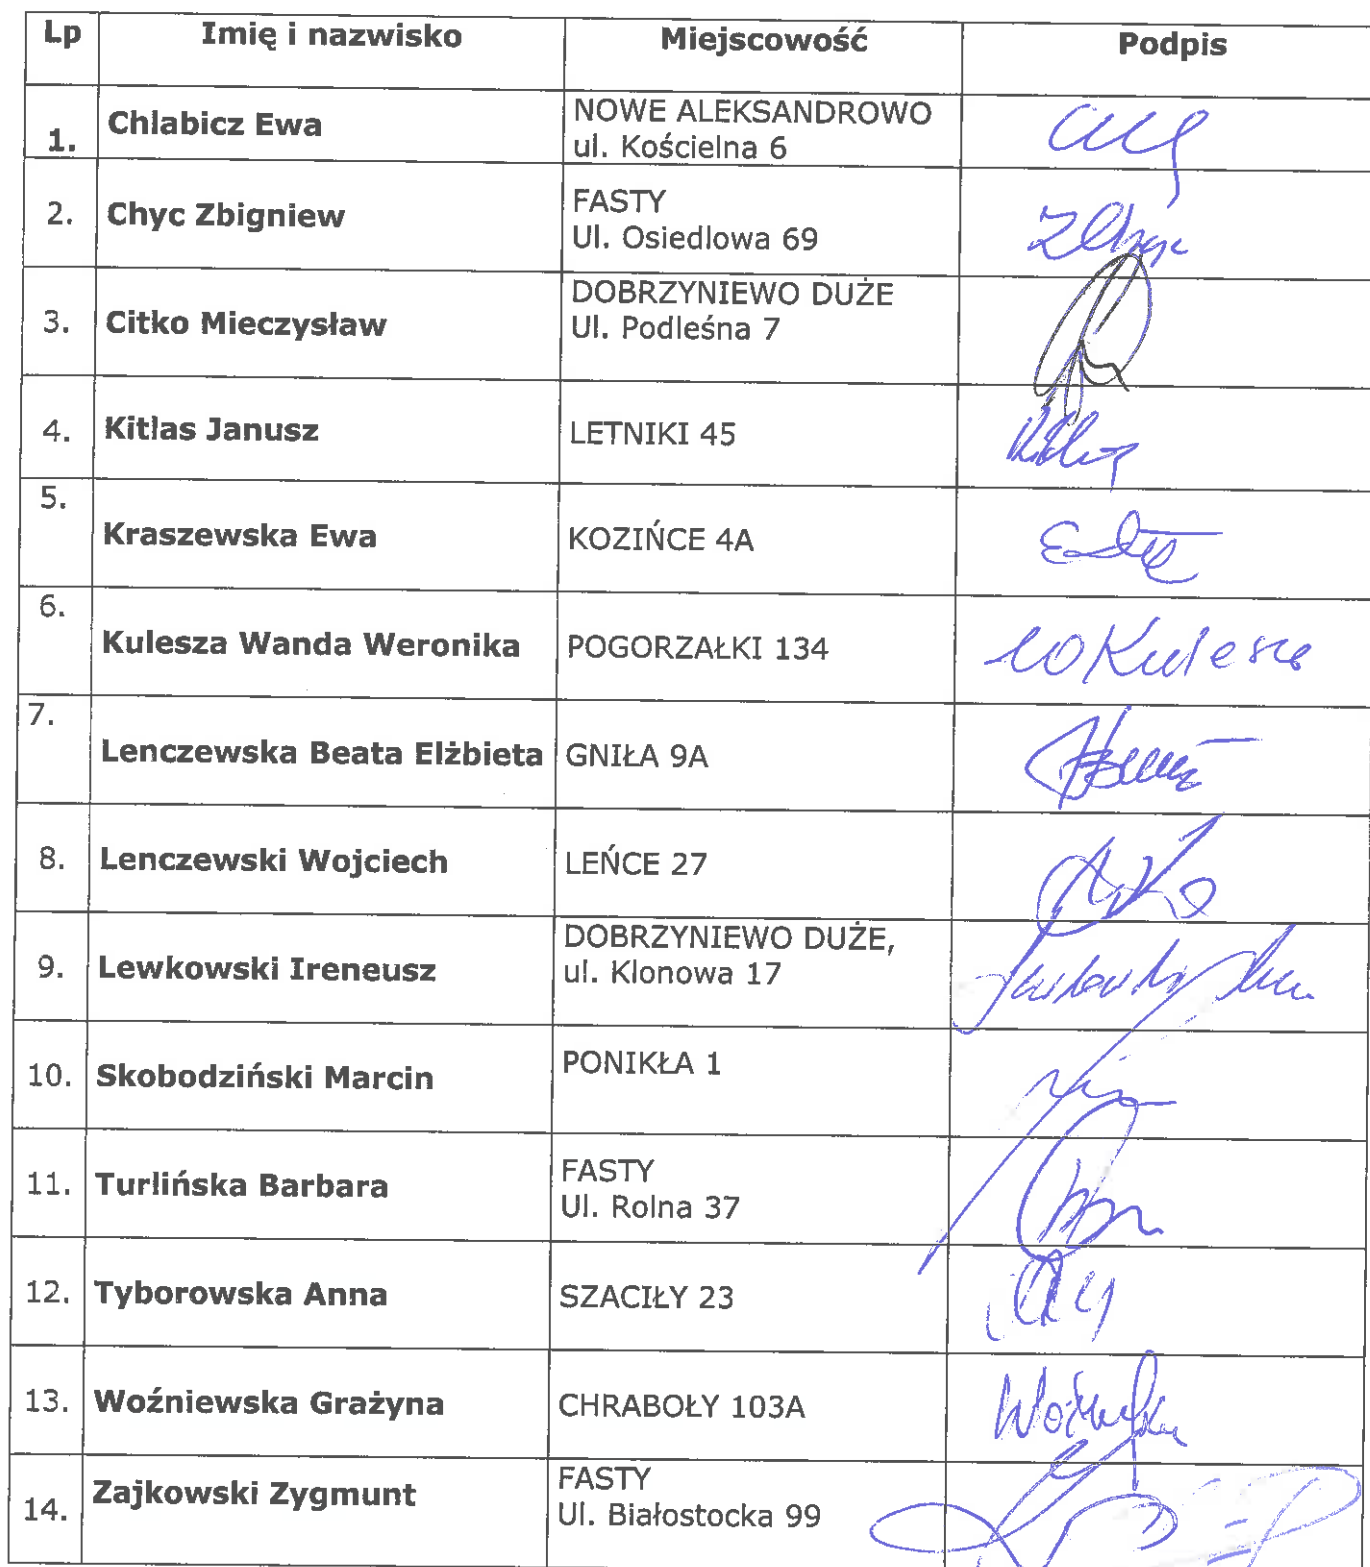 Lp Imię i nazwisko Miejscowość Podpis
1. Chlabicz Ewa NOWE ALEKSANDROWO
ul. Kościelna 6
2. Chyc Zbigniew FASTY
Ul. Osiedlowa 69
ZChyc
3. Citko Mieczysław DOBRZYNIEWO DUŻE
Ul. Podleśna 7
4. Kitlas Janusz LETNIKI 45
5. Kraszewska Ewa KOZIŃCE 4A
6. Kulesza Wanda Weronika POGORZAŁKI 134 WKulesza
7. Lenczewska Beata Elżbieta GNIŁA 9A
8. Lenczewski Wojciech LEŃCE 27
9. Lewkowski Ireneusz DOBRZYNIEWO DUŻE,
ul. Klonowa 17
10. Skobodziński Marcin PONIKŁA 1
11. Turlińska Barbara FASTY
Ul. Rolna 37
12. Tyborowska Anna SZACIŁY 23
13. Woźniewska Grażyna CHRABOŁY 103A
14. Zajkowski Zygmunt FASTY
Ul. Białostocka 99